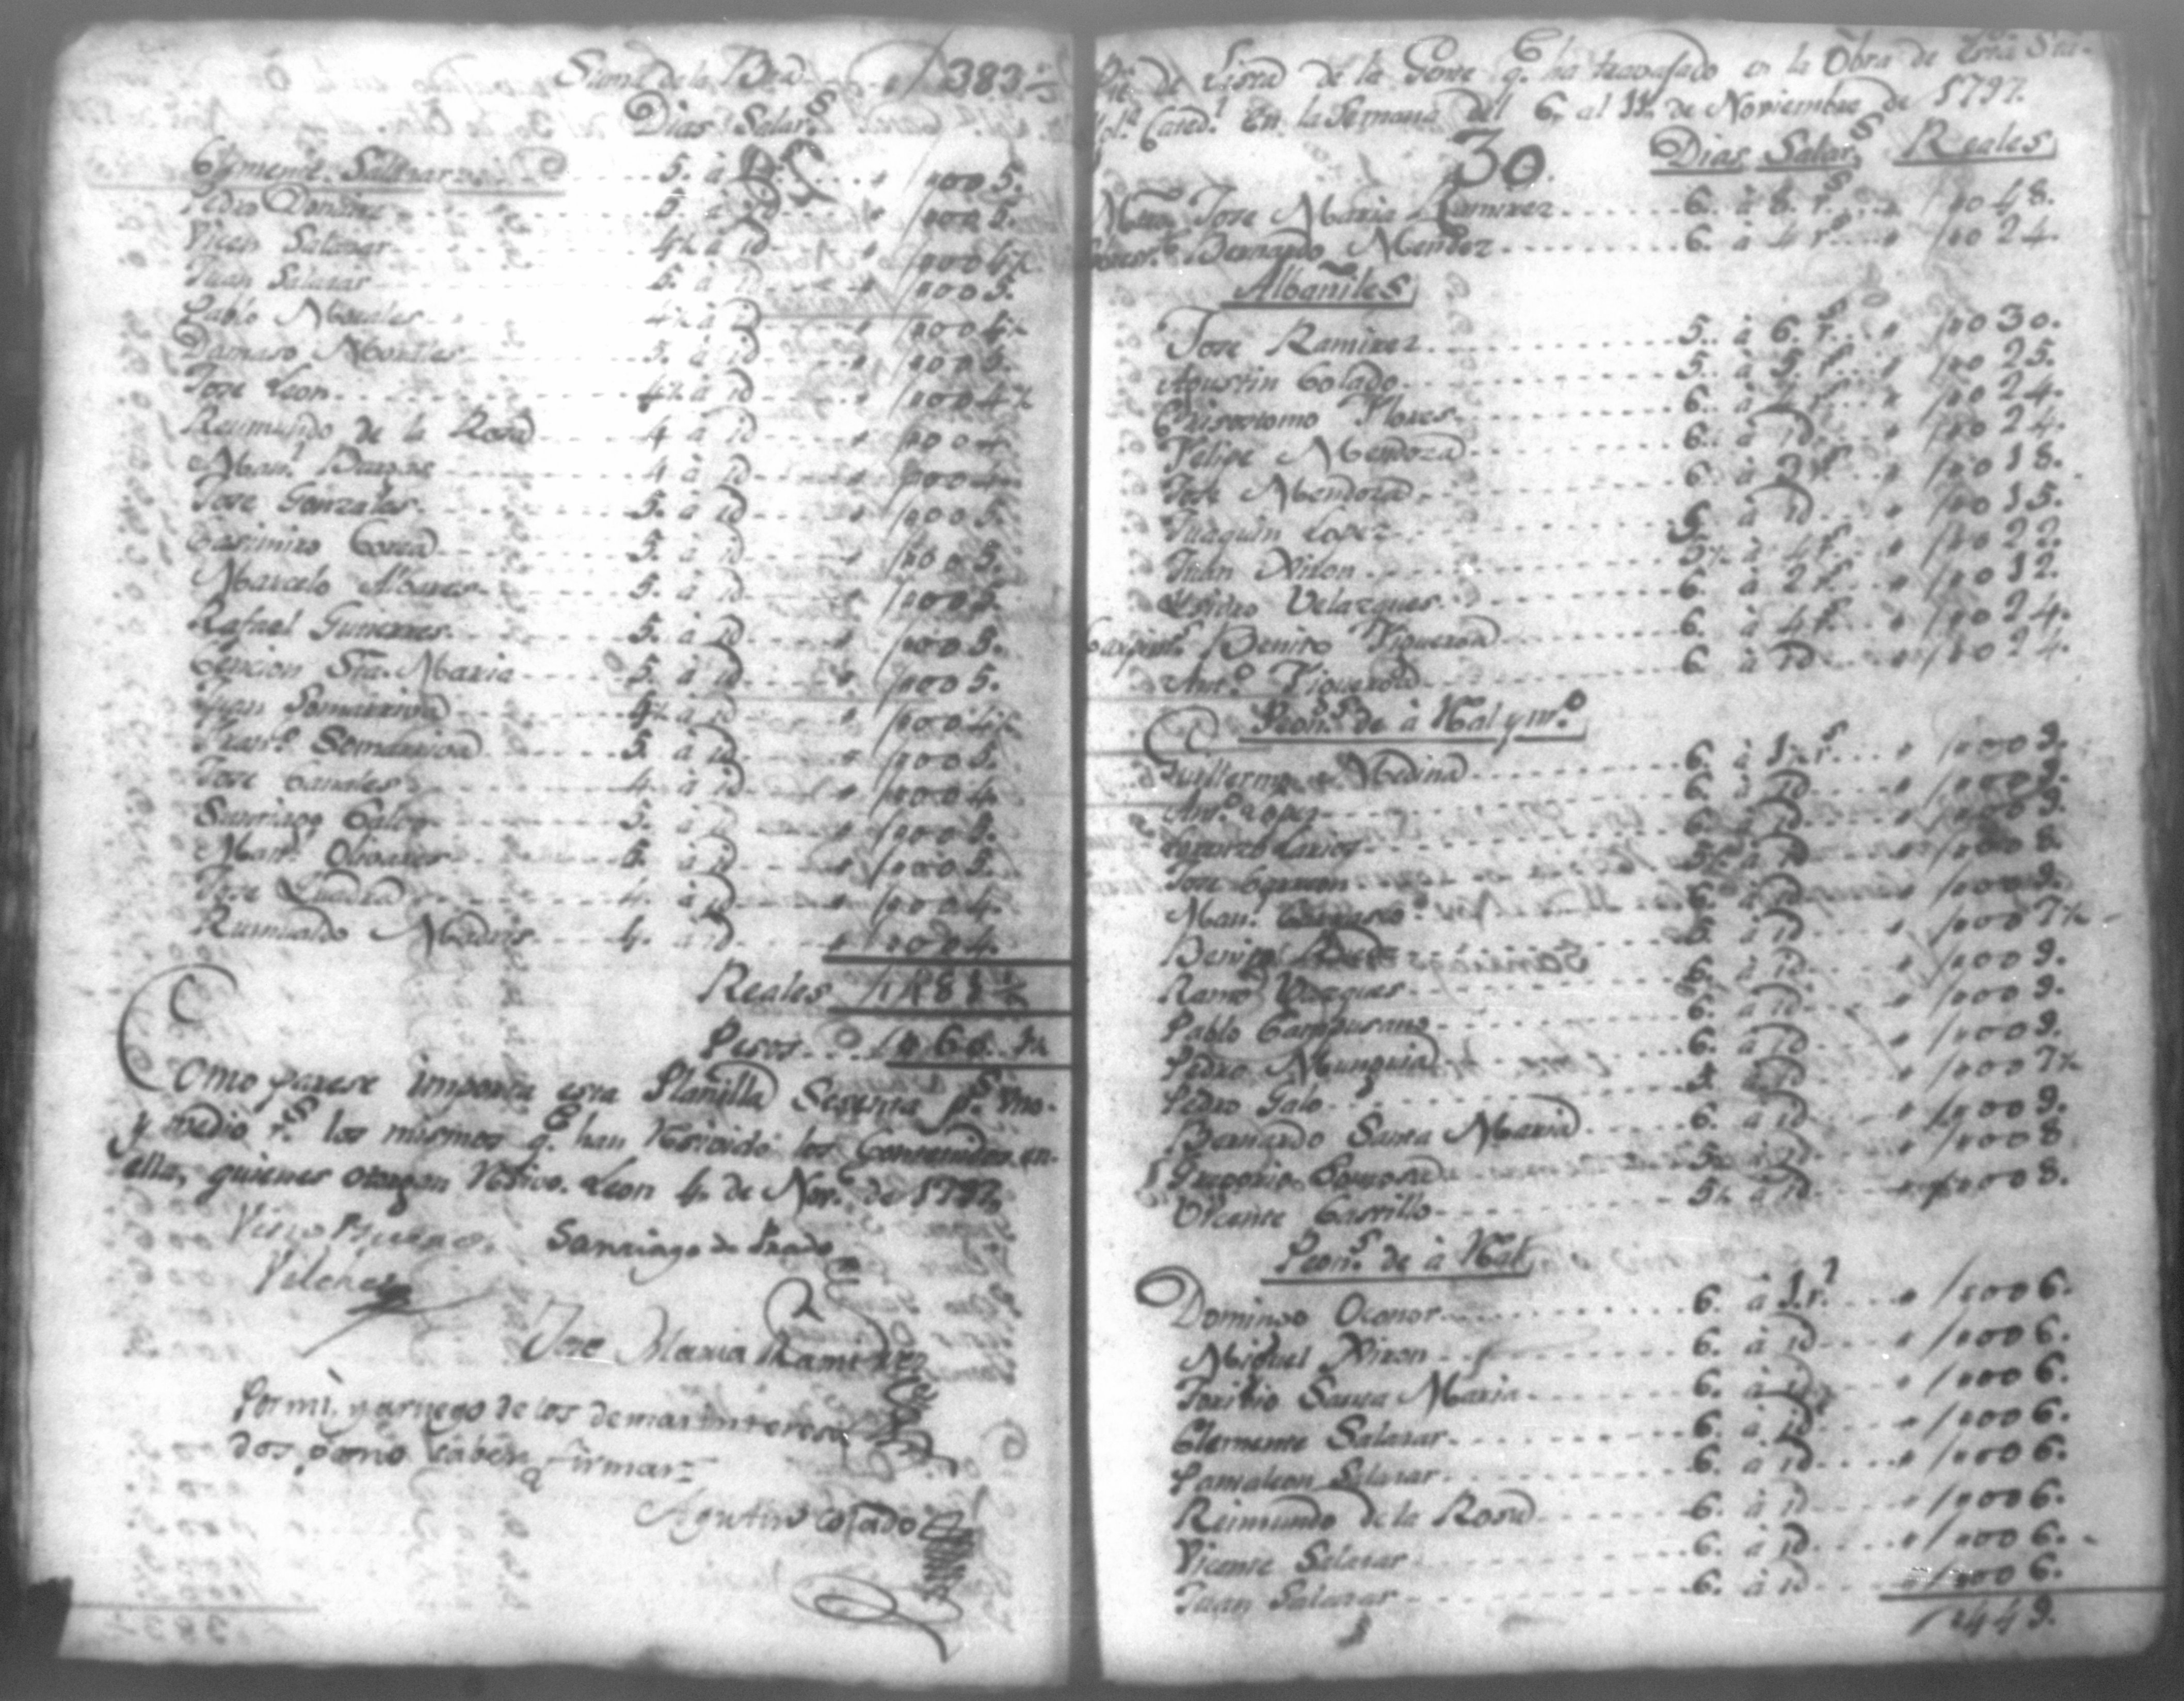 Suma de la Bta. 383 ½
Dias Salar.s
Clemente Salazar 5. à 1 r. 0005.
Pedro 5. à id 0005.
Vicen Salazar 4½ à id 0004½
Juan Salazar 5. à id 0005.
Pablo Morales 4½ à id 0004½
Damaso Morales 5. à id 0005.
Jose Leon 4½ à id 0004½
Reimundo de la Rosa 4 à id 0004
Man.l 4 à id 0004
Jose Gonzales 5. à id 0005.
Casimiro 5. à id 0005.
Marcelo Albares 5. à id 0005.
Rafael Gutierres 5. à id 0005.
Cencion Sta. Maria 5. à id 0005.
Juan Somarriva 4½ à id 0004½
Fran.co Somarriva 5. à id 0005.
Jose Canales 4. à id 0004.
Santiago 5. à id 0005.
Man.l Olivares 5. à id 0005.
Jose Cuadra 4. à id 0004.
Rumualdo Madris 4. à id 0004.
Reales 481 ½
Pesos 060. 1½
Como parese importa esta Planilla Sesenta p.s uno
y medio r.s los mismos q.e han Resivido los Contenidos en
ella, quienes otorgan Resivo. Leon 4. de Nov.e de 1797.
Visto Bueno. Santiago de Prado
Vilches
Jose Maria Ramirez
Por mi, y arruego de los demas interesa
dos por no saber firmar
Agustin Colado
Pie de Lista de la Gente q.e ha travajado en la Obra de Esta Sta.
Igl.a Cated.l en la Semana del 6. al 11. de Noviembre de 1797.
30. Dias Salar.s Reales
Mtro. Jose Maria Ramirez 6. à 8. r.s 0048.
Bernardo Mendez 6. à 4 r.s 0024.
Albañiles
Jose Ramirez 5. à 6. r.s 0030.
Agustin Colado 5. à 5 r.s 0025.
Crisostomo Flores 6. à 4 r.s 0024.
Felipe Mendoza 6. à id 0024.
Jose Mendoza 6. à 3 r.s 0018.
Juaquin Lopez 5. à id 0015.
Juan Nixon 5½ à 4 r.s 0022.
Isidro Velazques 6. à 2 r.s 0012.
Carpint.s Benito Figueroa 6. à 4 r.s 0024.
Ant.o Figueroa 6. à id 0024.
Peon.s de à Real y m.o
Guillermo Medina 6. à 1½ r.s 0009.
Ant.o Lopez 6. à id 0009.
Lorenzo Larios 6. à id 0009.
Jose 5½ à id 0008.
Man.l Carrasco 6. à id 0009.
Benito 5. à id 0007½
Ramon Vazques 6. à id 0009.
Pablo Campusano 6. à id 0009.
Pedro Munguia 6. à id 0009.
Pedro Galo 5 à id 0007½
Bernardo Santa Maria 6. à id 0009.
Gregorio 5½ à id 0008
Vicente Castillo 5½ à id 0008.
Peon.s de à Real
Domingo Oconor 6. à 1. r.l 0006.
Miguel Nixon 6. à id 0006.
Toribio Santa Maria 6. à id 0006.
Clemente Salazar 6. à id 0006.
Pantaleon Salazar 6. à id 0006.
Reimundo de la Rosa 6. à id 0006.
Vicente Salazar 6. à id 0006.
Juan Salazar 6. à id 0006.
0449.